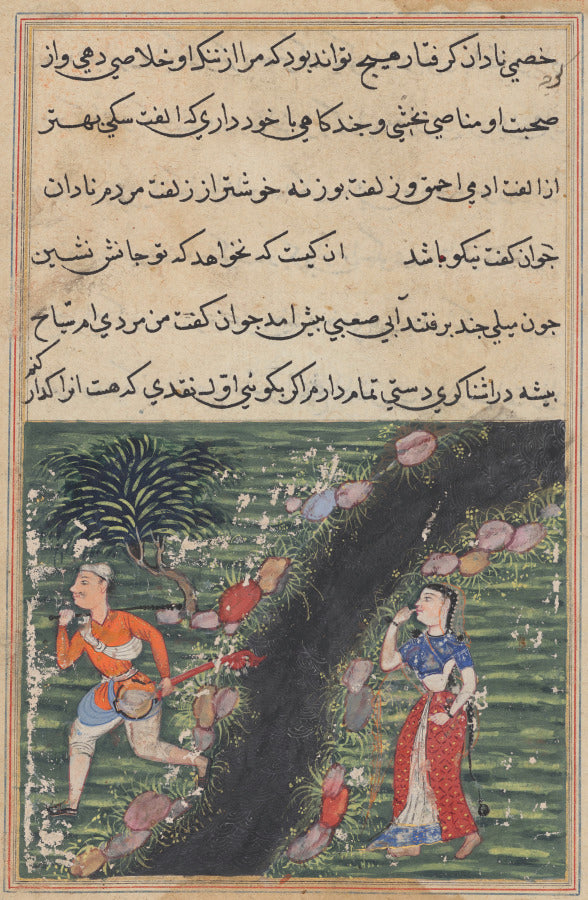 خصمي نادان كرفتار هيچ تواند بود كه مرا از ننك او خلاصي دهي و از
صحبت او مناصي بخشي و جند كاهي با خود داري كه الفت سكي بهتر
از الفت ادمي احمق و زلفت بوزنه خوشتر از زلفت مردم نادان
جوان كفت نيكو باشد ان كيست كه نخواهد كه تو جانش نشين
جون ميلي جند برفتند آبي صعبي بيش امد جوان كفت من مردي ام سياح
بيشه در اشناكري دستي تمام دارم اكر بكوئي اول نقدي كه هست انرا كذار
كنم